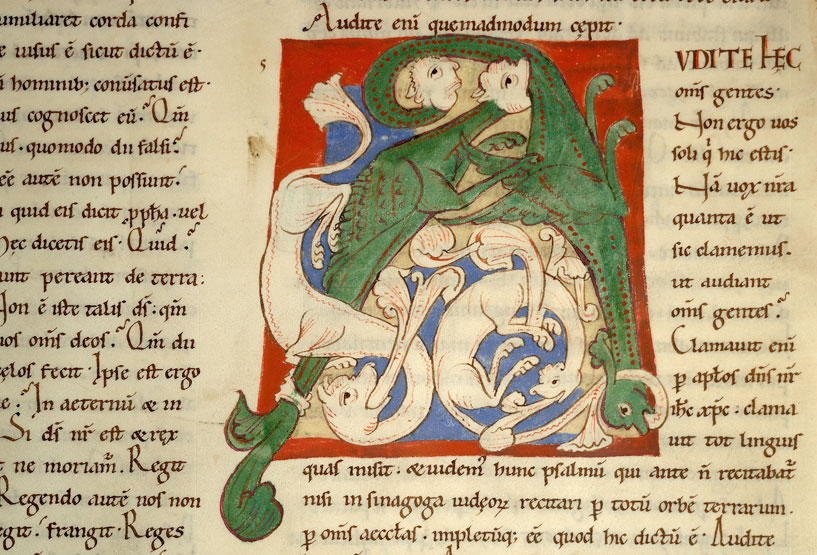 umiliaret corda confi
e iusus ē sicut dictū ē·
hominib; conūsatus est·
us cognoscet eū. Qm̄
us· quomodo dii falsi
eē autē non possunt
quid eis dicit ꝓpħa· uel
hec dicetis eis· Quid
unt pereant de terra:
Non ē iste talis ds̄· qm̄
uos om̄s deos. Qm̄ dii
celos fecit· Ipse est ergo
In aeternū & in
Si ds̄ nr̄ est & rex
t ne moriam̄. Regit
Regendo autē nos non
egit· frangit· Reges
Audite enī quemadmodum cępit·
s
VDITE hĘC
om̄s gentes·
Non ergo uos
soli q̇ hic estis·
Nā uox nr̄a
quanta ē ut
sic clamemus.
ut audiant
om̄s gentes.
Clamauit enī
p apłos dn̄s nr̄
ihc xpc· clama
uit tot linguis
quas misit· & uidem' hunc psalmū qui ante n̄ recitabat̄
nisi in sinagoga iudęoꝝ recitari p totū orbē terrarum·
p om̄s aeccłas· impletūq; eē quod hic dictū ē· Audite